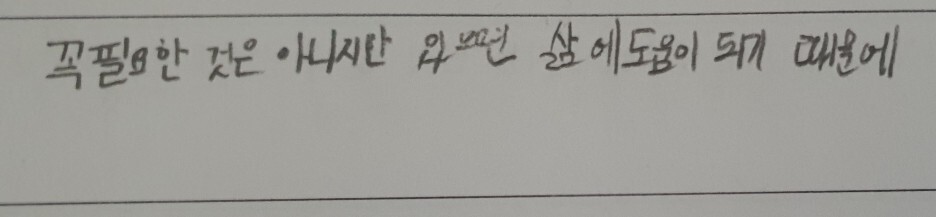 꼭필요한 것은 아니지만 삶에도움이 되기 때문에